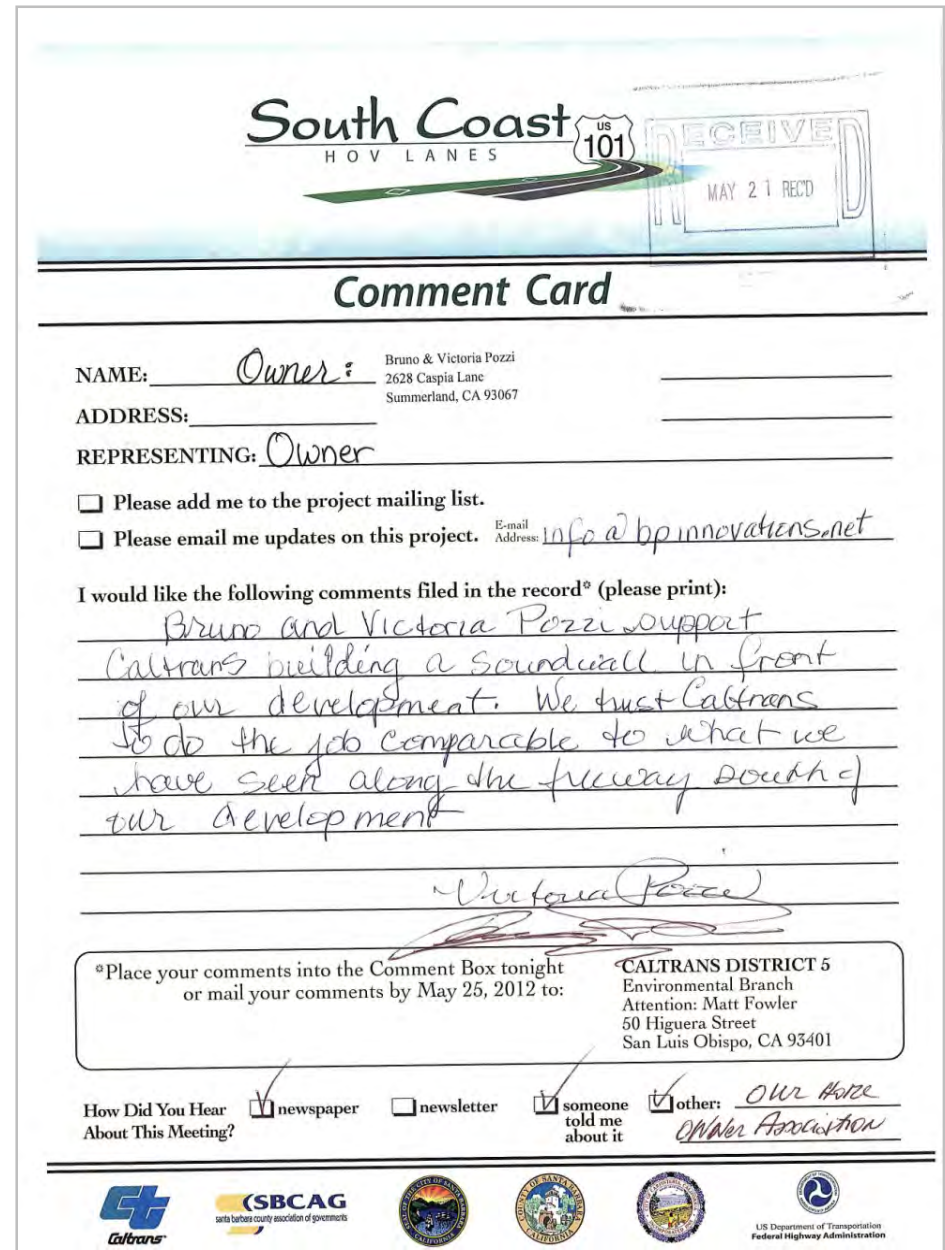 South Coast
HOV LANES
US
101
RECEIVED
MAY 21 REC'D
Comment Card
NAME: Owner:
Bruno & Victoria Pozzi
2628 Caspia Lane
Summerland, CA 93067
ADDRESS:
REPRESENTING: Owner
Please add me to the project mailing list.
Please email me updates on this project. E-mail Address: info@bpinnovations.net
I would like the following comments filed in the record* (please print):
Bruno and Victoria Pozzi support
Caltrans building a soundwall in front
of our development. We trust Caltrans
to do the job comparable to what we
have seen along the freeway south of
our development
Victoria Pozzi
*Place your comments into the Comment Box tonight
or mail your comments by May 25, 2012 to:
CALTRANS DISTRICT 5
Environmental Branch
Attention: Matt Fowler
50 Higuera Street
San Luis Obispo, CA 93401
How Did You Hear
About This Meeting?
newspaper
newsletter
someone
told me
about it
other: Our Home
Owner Association
Caltrans
SBCAG
santa barbara county association of governments
US Department of Transportation
Federal Highway Administration